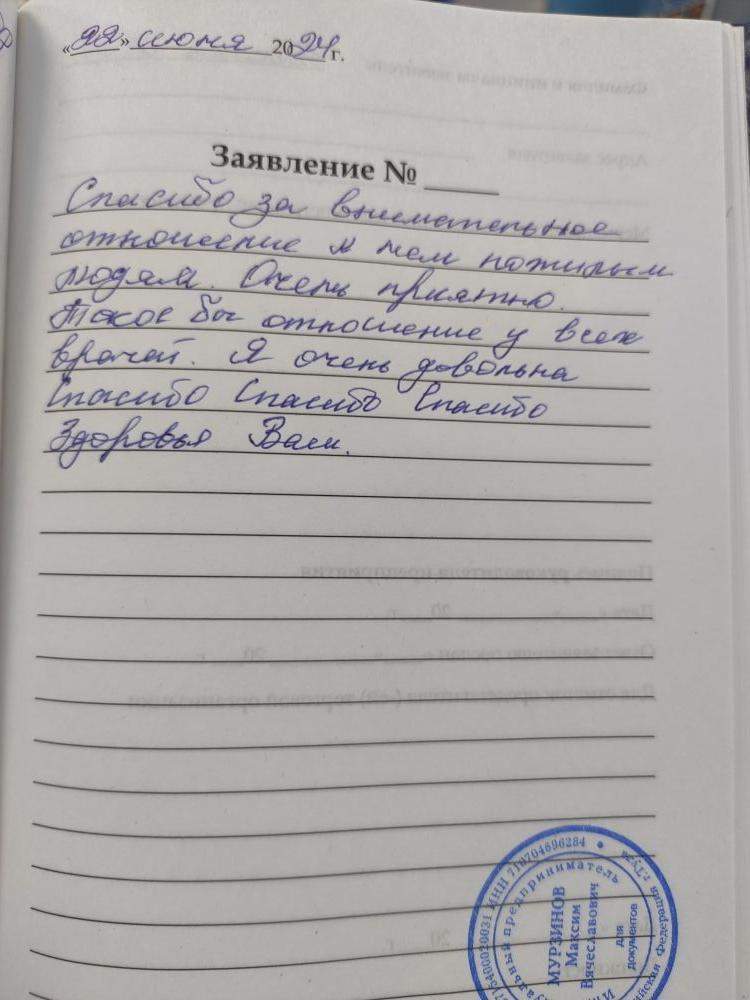 «22» июня 2024 г.
Заявление № ____
Спасибо за внимательное
отношение к нам пожилым
людям. Очень приятно.
Такое бы отношение у всех
врачей. Я очень довольна
Спасибо Спасибо Спасибо
Здоровья Вам.
ИНН 710704696284
Индивидуальный предприниматель
МУРЗИНОВ
Максим
Вячеславович
для
документов
г.Тула